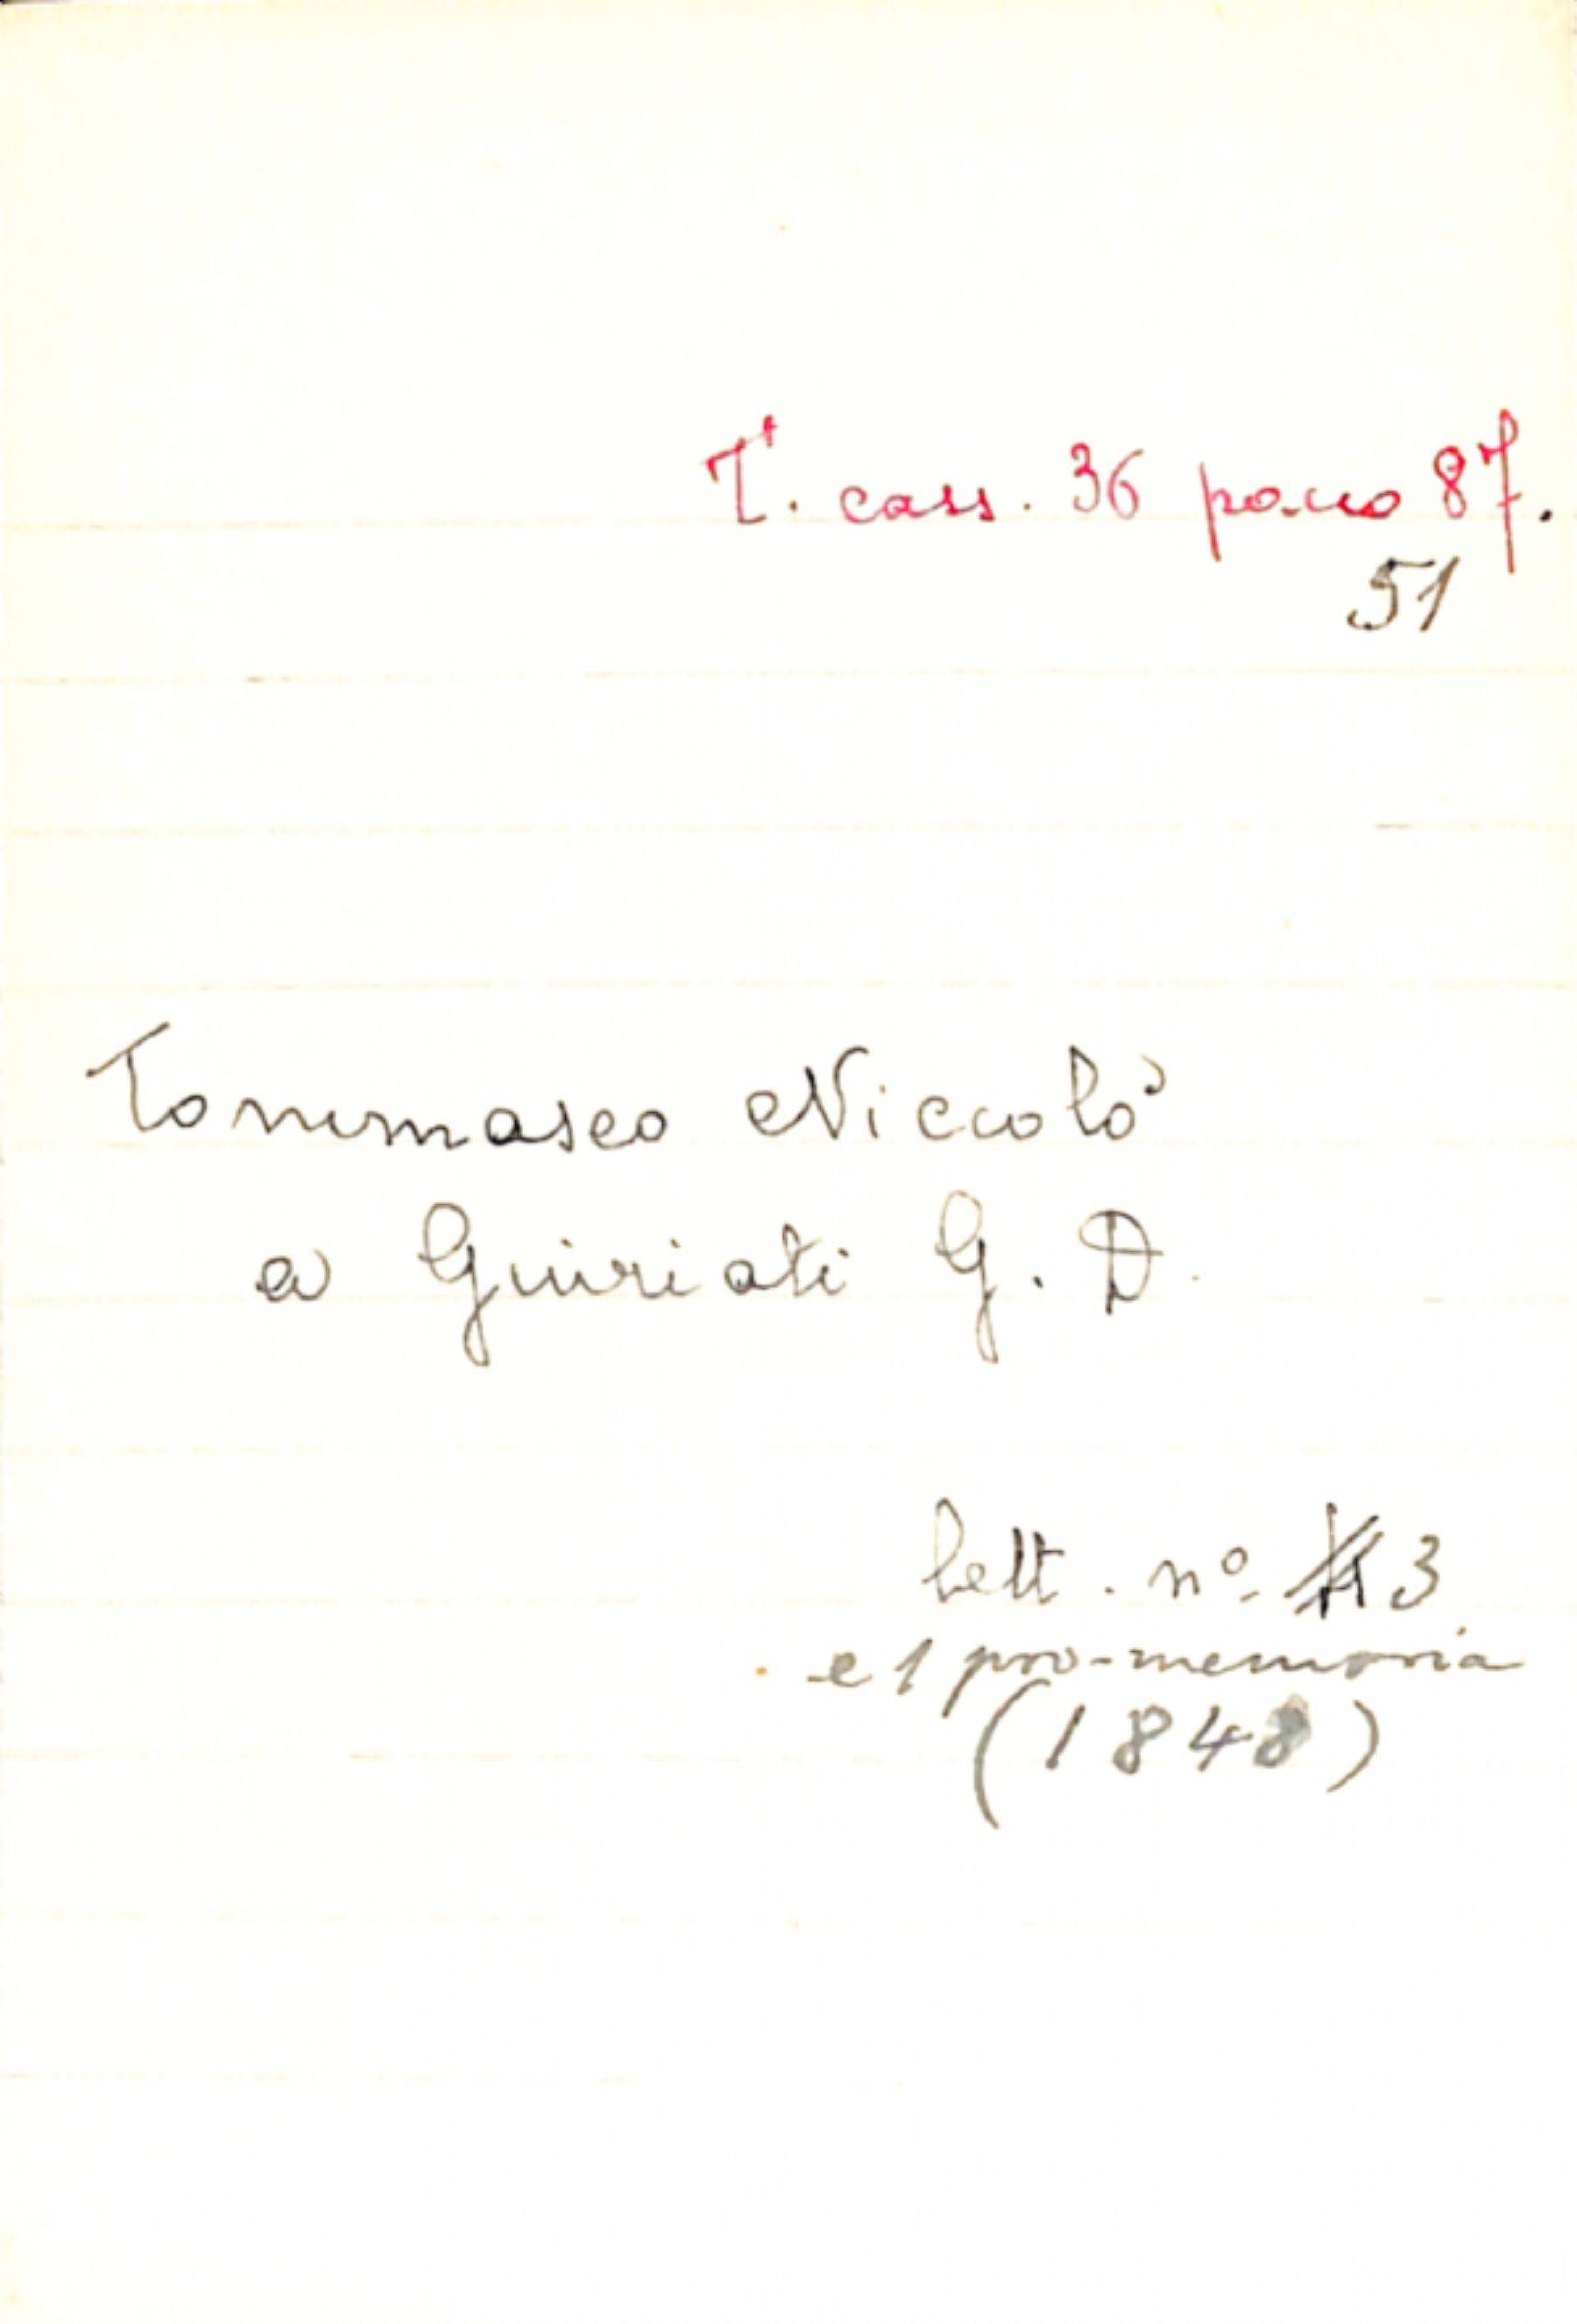 T. cass. 36 pacco 87.
51
Tommaseo Niccolò
a Giuriati G. D.
lett. n° 3
e 1 pro-memoria
(1848)